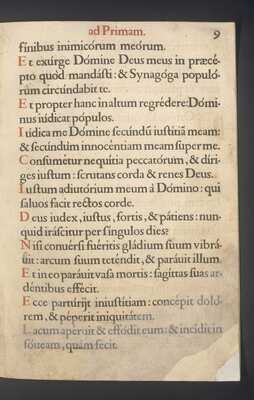 ad Primam. 9
finibus inimicórum meórum.
Et exúrge Dómine Deus meus in præcé-
pto quod mandásti: & Synagóga populó-
rum circúndabit te.
Et propter hanc in altum regrédere: Dómi-
nus iúdicat pópulos.
Iúdica me Dómine secúndũ iustítiã meam:
& secúndum innocéntiam meam super me.
Consumétur nequítia peccatórum, & díri-
ges iustum: scrutans corda & renes Deus.
Iustum adiutórium meum à Dómino: qui
saluos facit rectos corde.
Deus iudex, iustus, fortis, & pátiens: nun-
quid iráscitur per síngulos dies?
Nisi conuérsi fuéritis gládium suum vibrá-
uit: arcum suum teténdit, & paráuit illum.
Et in eo paráuit vasa mortis: sagíttas suas ar-
déntibus effécit.
Ecce partúrijt iniustítiam: concépit doló-
rem, & péperit iniquitátem.
Lacum apéruit & effódit eum: & íncidit in
fóueam, quam fecit.